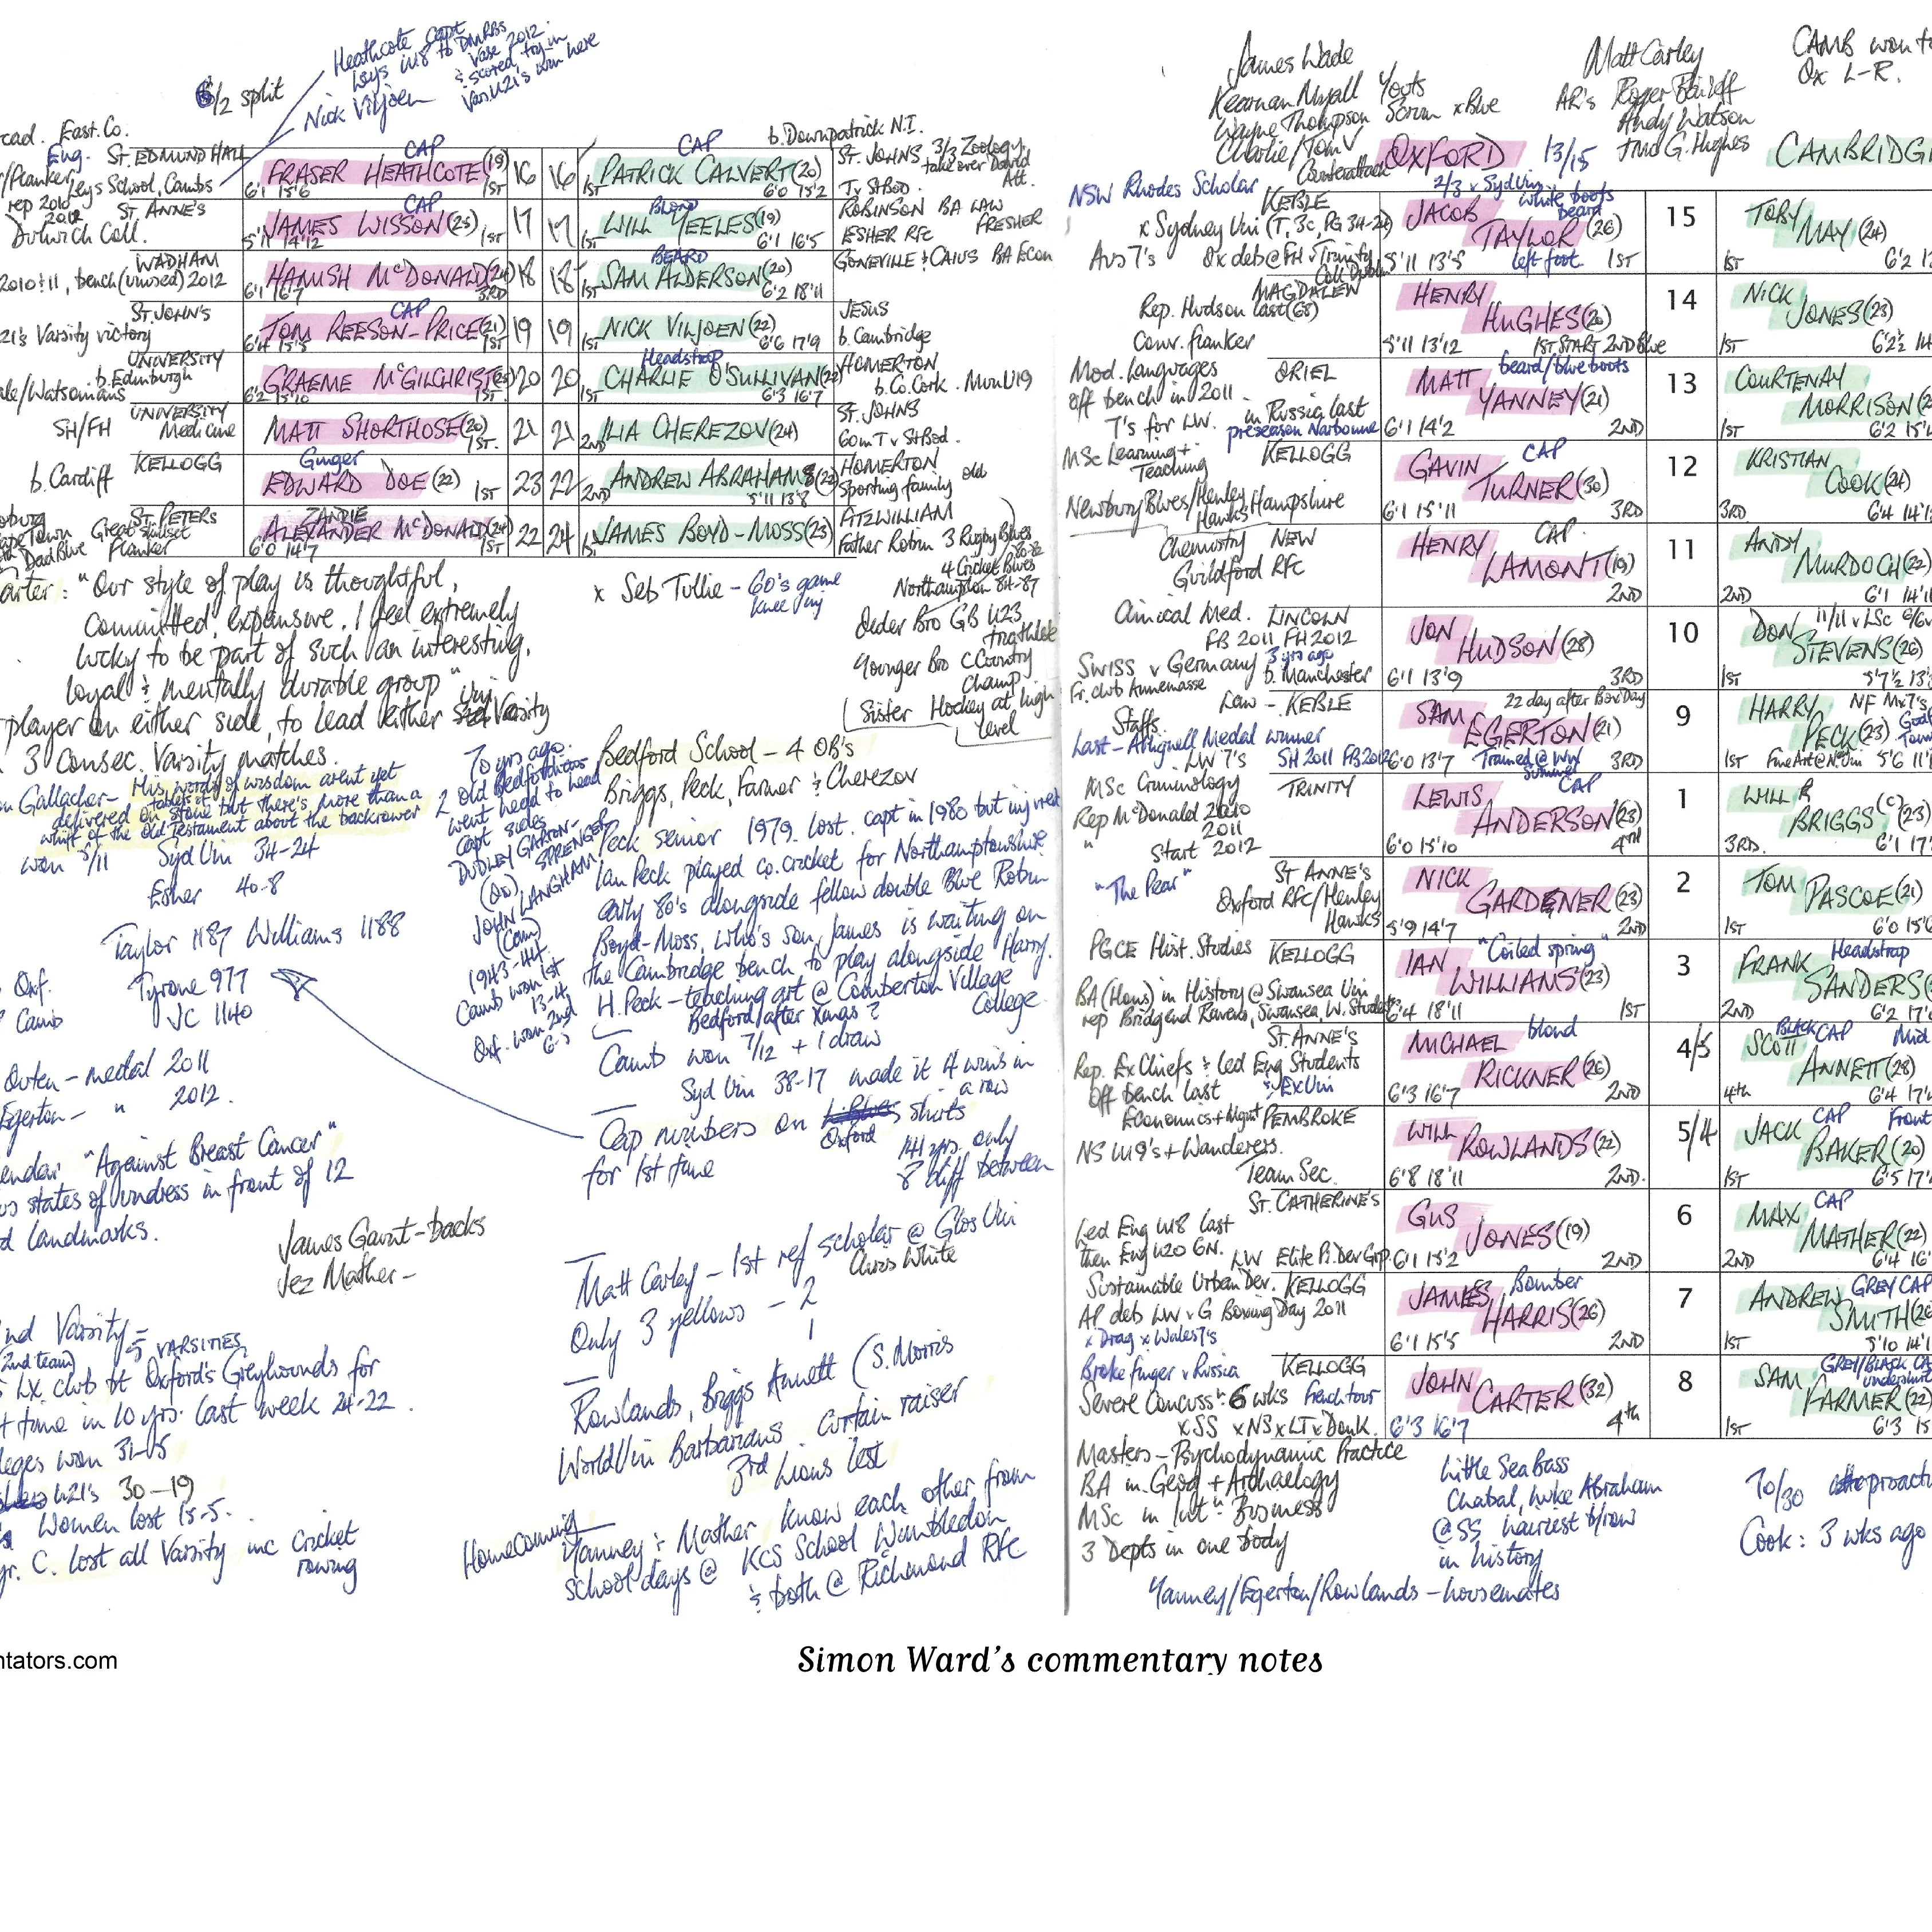 Heathcote capt
Leys U18 to DMRBS
Vase 2012
& scored try in
Var. U21's win here
6/2 split
Nick Viljoen
East. Co.
Eng. ST. EDMUND HALL
Leys School, Cambs
CAP
FRASER HEATHCOTE (19)
6'1 15'6 1ST
16 16
CAP
1ST PATRICK CALVERT (20)
6'0 15'2
b. Downpatrick N.I.
ST. JOHNS 3/3 Zoology
take over David
Att.
T v StBod
rep 2010
2012 ST. ANNE'S
Dulwich Coll.
CAP
JAMES WISSON (25)
5'11 14'12 1ST
17 17
BLOND
1ST WILL YEELES (19)
6'1 16'5
ROBINSON BA LAW
ESHER RFC FRESHER
WADHAM
2010 & 11, bench (unused) 2012
HAMISH McDONALD (24)
6'1 16'7 3RD
18 18
BEARD
1ST SAM ALDERSON (20)
6'2 18'11
GONEVILLE & CAIUS BA Econ
ST. JOHN'S
21's Varsity victory
CAP
TOM REESON-PRICE (21)
6'4 15'5 1ST
19 19
1ST NICK VILJOEN (22)
6'6 17'9
JESUS
b. Cambridge
UNIVERSITY
b. Edinburgh
Watsonians
GRAEME McGILCHRIST (25)
6'2 15'10 1ST
20 20
Headstrap
1ST CHARLIE O'SULLIVAN (22)
6'3 16'7
HOMERTON
b. Co. Cork. Mun U19
SH/FH UNIVERSITY
Medicine
MATT SHORTHOSE (20)
1ST
21 21
2ND ILIA CHEREZOV (24)
ST. JOHNS
60m T v StBod.
b. Cardiff KELLOGG
Ginger
EDWARD DOE (22) 1ST
23 22
2ND ANDREW ABRAHAMS (22)
5'11 13'8
HOMERTON
Sporting family old
ST. PETERS
Great sidestep
Dad Blue Flanker
ZANDIE
ALEXANDER McDONALD (24)
6'0 14'7 1ST
22 24
1ST JAMES BOYD-MOSS (23)
FITZWILLIAM
Father Robin 3 Rugby Blues
80-82
4 Cricket Blues
Northampton 84-87
Older Bro GB U23
triathlete
Younger Bro C Country
Champ
Sister Hockey at high
level
x Seb Tullie - 60's game
knee inj
"Our style of play is thoughtful,
committed, expansive. I feel extremely
lucky to be part of such an interesting,
loyal & mentally durable group"
player on either side, to lead either Uni Varsity
3 Consec. Varsity matches.
Gallagher - His words of wisdom arent yet
delivered on tablets of stone but there's more than a
whiff of the Old Testament about the backrower
won 5/11 Syd Uni 34-24
Esher 40-8
Taylor 1187 Williams 1188
Oxf. Tyrone 977
Camb JC 1140
Outen - medal 2011
Egerton - " 2012.
"Against Breast Cancer"
states of undress in front of 12
landmarks.
James Gaunt - backs
Jez Mather -
2nd Varsity =
5 VARSITIES
(2nd team)
LX club bt Oxford's Greyhounds for
time in 10 yrs. last week 24-22.
won 31-5
U21's 30-19
Women lost 15-5.
C. lost all Varsity inc Cricket
rowing
70 yrs ago.
2 old Bedfordians
went head to head
capt sides
DUDLEY GARTON-
SPRENGER
(Ox)
JOHN LANGHAM
(Cam)
1943-44.
Camb won 1st
13-4
Oxf. won 2nd
6-3
Bedford School - 4 OB's
Briggs, Peck, Farmer & Cherezov
Peck senior 1979. lost. capt in 1980 but injured
Ian Peck played co. cricket for Northamptonshire
early 80's alongside fellow double Blue Robin
Boyd-Moss, who's son, James is waiting on
the Cambridge bench to play alongside Harry.
H. Peck - teaching art @ Comberton Village
College
Bedford after Xmas?
Camb won 7/12 + 1 draw
Syd Uni 38-17 made it 4 wins in
a row
Cap numbers on Oxford shirts
for 1st time
141 yrs. only
8 diff between
Matt Carley - 1st ref scholar @ Glos Uni
Chris White
Only 3 yellows - 2
1
Rowlands, Briggs Annett (S. Morris
World Uni Barbarians. Curtain raiser
3rd Lions test
Homecoming
Yanney & Mather know each other from
school days @ KCS School Wimbledon
& both @ Richmond RFC
James Wade
Keernan Myall Yoots
Wayne Thompson Scrum xBlue
Charlie/Tom V
Counterattack
OXFORD 13/15
Matt Carley
AR's Roger Baileff
Andy Watson
TMO G. Hughes
CAMB won to
Ox L-R.
CAMBRIDG
NSW Rhodes Scholar
KEBLE
x Sydney Uni (T, 3c, PG 34-24)
Aus 7's Ox deb @ FH v Trinity
Coll Dublin
2/3 v Syd Uni
white boots
beard
JACOB TAYLOR (26)
5'11 13'5 left foot 1ST
15
TOBY MAY (24)
1ST 6'2
MAGDALEN
Rep. Hudson last (68)
Conv. flanker
HENRY HUGHES (20)
5'11 13'12 1ST START 2ND Blue
14
NICK JONES (23)
1ST 6'2½
Mod. Languages ORIEL
off bench in 2011.
7's for LW. in Russia, last
preseason Narbonne
beard/blue boots
MATT YANNEY (21)
6'1 14'2 2ND
13
COURTENAY MORRISON
1ST 6'2
MSc Learning + Teaching KELLOGG
Newbury Blues/Henley Hawks Hampshire
CAP
GAVIN TURNER (30)
6'1 15'11 3RD
12
KRISTIAN COOK (24)
3RD 6'4
Chemistry NEW
Guildford RFC
CAP
HENRY LAMONT (19)
2ND
11
ANDY MURDOCH (22)
2ND 6'1
Clinical Med. LINCOLN
FB 2011 FH 2012
Swiss v Germany 3 yrs ago
Fr. club Annemasse b. Manchester
JON HUDSON (28)
6'1 13'9 3RD
10
11/11 v LSc
DON STEVENS (26)
1ST 5'7½
Law - KEBLE
Staffs
Last - Alignell Medal winner
LW 7's SH 2011 FB 2012
22 day after Box Day
SAM EGERTON (21)
6'0 13'7 Trained @ WW 3RD
summer
9
HARRY PECK (23)
NF Mx7's
1ST Fine Art @ N. Uni 5'6
MSc Criminology TRINITY
Rep McDonald 2010
2011
" Start 2012
CAP
LEWIS ANDERSON (23)
6'0 15'10 4TH
1
WILL R BRIGGS (c) (23)
3RD. 6'1
"The Pear"
ST ANNE'S
Oxford RFC/Henley
Hawks
NICK GARDENER (23)
5'9 14'7 2ND
2
TOM PASCOE (21)
1ST 6'0
PGCE Hist. Studies KELLOGG
BA (Hons) in History @ Swansea Uni
rep Bridgend Ravens, Swansea, W. Students
"Coiled spring"
IAN WILLIAMS (23)
6'4 18'11 1ST
3
Headstrap
FRANK SANDERS
2ND 6'2
ST. ANNE'S
Rep. Ex Chiefs & led Eng Students
Off bench last & Ex Uni
blond
MICHAEL RICKNER (26)
6'3 16'7 2ND
4/5
BLACK CAP
SCOTT ANNETT (28)
4th 6'4
Economics + Mgmt PEMBROKE
NS U19's + Wanderers.
Team Sec.
WILL ROWLANDS (22)
6'8 18'11 2ND.
5/4
CAP Front
JACK BAKER (20)
1ST 6'5
ST. CATHERINE'S
Led Eng U18 last
then Eng U20 6N. LW Elite Pl. Dev Grp.
GUS JONES (19)
6'1 15'2 2ND
6
CAP
MAX MATHER (22)
2ND 6'4
Sustainable Urban Dev. KELLOGG
AP deb LW v G Boxing Day 2011
x Drag x Wales 7's
Bomber
JAMES HARRIS (26)
6'1 15'5 2ND
7
GREY CAP
ANDREW SMITH
1ST 5'10
Broke finger v Russia KELLOGG
Severe Concuss: 6 wks French tour
x SS x NS x LT x Donk.
JOHN CARTER (32)
6'3 16'7 4th
8
GREY/BLACK CA
undershirt
SAM FARMER (22)
1ST 6'3
Masters - Psychodynamic Practice
BA in Geog + Archaelogy
MSc in Int: Business
3 Depts in one body
Little Sea Bass
Chabal, Luke Abraham
@ SS hairiest b/row
in history
70/30
Cook: 3 wks ago
Yanney/Egerton/Rowlands - housemates
ntators.com
Simon Ward's commentary notes